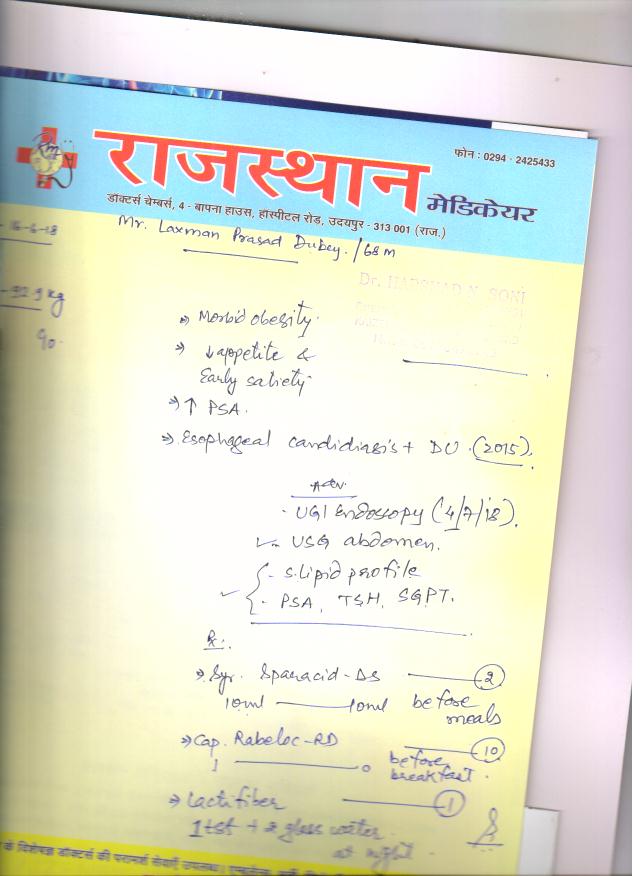 Rm
राजस्थान
मेडिकेयर
फोन : 0294 - 2425433
डॉक्टर्स चेम्बर्स, 4 - बापना हाउस, हॉस्पीटल रोड, उदयपुर - 313 001 (राज.)
16-6-18
Mr. Laxman Prasad Dubey. / 68 M
Dr. HARSHAD N. SONI
92.9 kg
90.
→ Morbid obesity.
→ ↓ appetite &
Early satiety
→ ↑ PSA.
→ Esophageal candidiasis + DU. (2015).
Adv.
- UGI Endoscopy (4/7/18).
✓ - USG abdomen.
- S. lipid profile
✓ - PSA, TSH, SGPT.
Rx.
→ Syr. Sparacid-DS 2
10ml 10ml before
meals
→ Cap. Rabeloc-RD 10
1 0 before
breakfast.
→ Lactifiber 1
1 tsf + 2 glass water.
at night.
के विशेषज्ञ डॉक्टर्स की परामर्श सेवाएँ उपलब्ध।